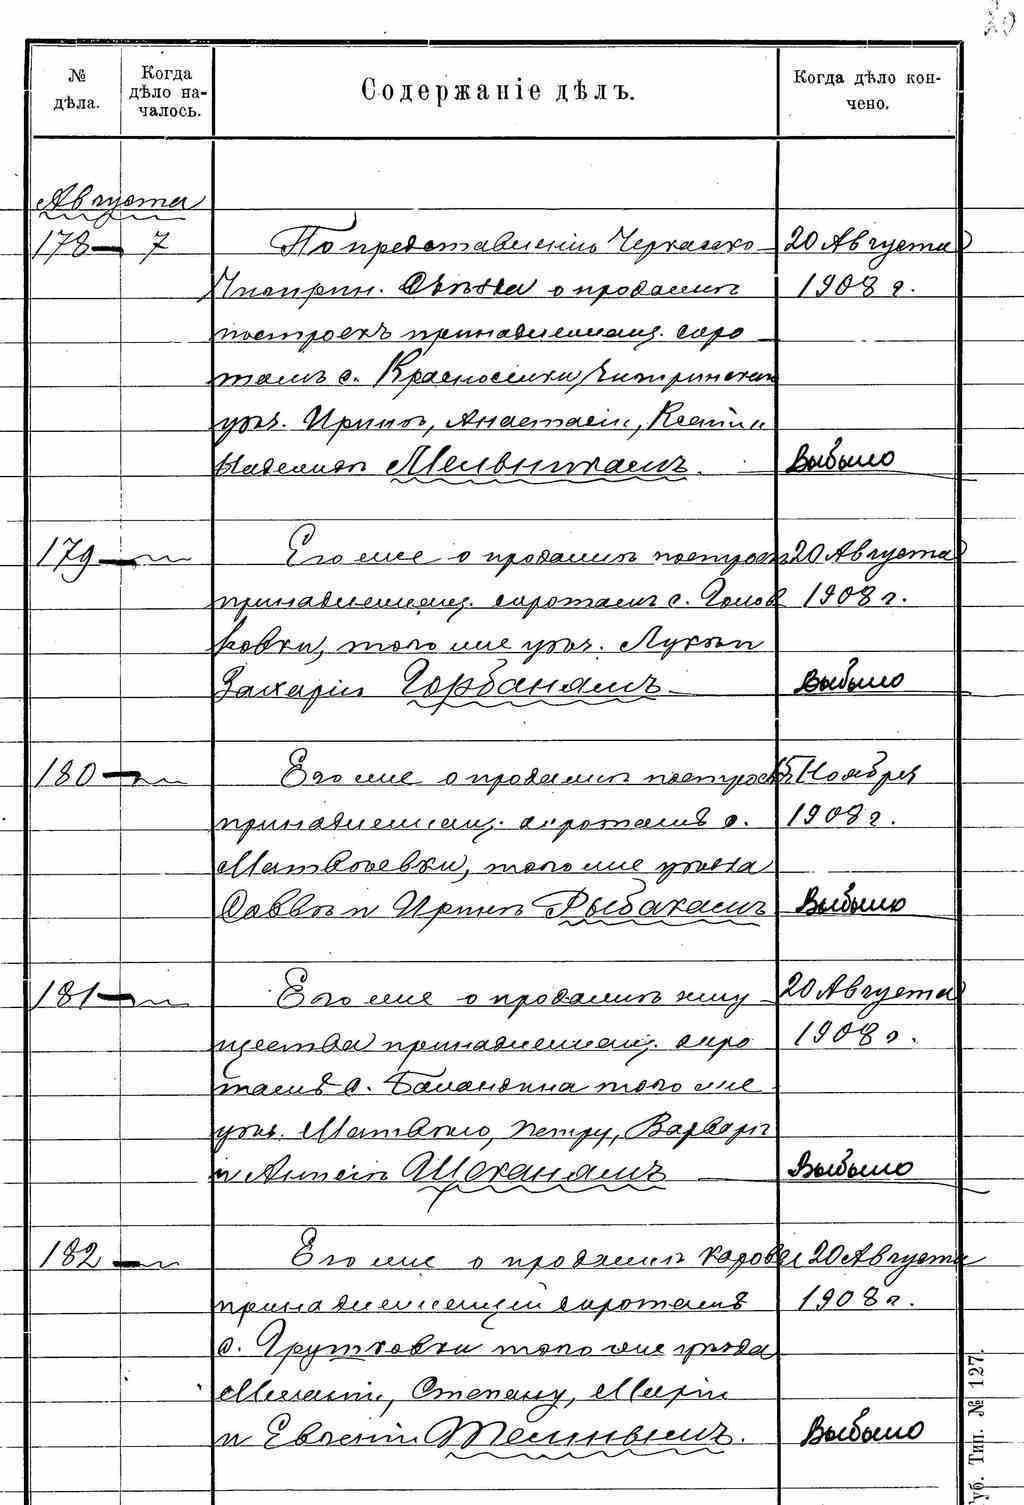 20
№ дѣла.
Когда дѣло началось.
Содержаніе дѣлъ.
Когда дѣло кончено.
Августа
178 — 7 По представленію Черкасско- 20 Августа
Чигирин. Съѣзда о продажѣ 1908 г.
построекъ принадлежащ. сиро-
тамъ с. Красноселки, Чигиринскаго
уѣз. Иринѣ, Анастасіи, Ксеніи и
Надеждѣ Мельникамъ. Выбыло
179 — Его же о продажѣ построекъ 20 Августа
принадлежащ. сиротамъ с. Голов 1908 г.
ковки, того же уѣз. Лукѣ и
Захарію Горбанямъ Выбыло
180 — Его же о продажѣ построекъ 15 Ноября
принадлежащ. сиротамъ с. 1908 г.
Матвѣевки, того же уѣзда
Саввѣ и Иринѣ Рыбакамъ Выбыло
181 — Его же о продажѣ иму- 20 Августа
щества принадлежащ. сиро 1908 г.
тамъ с. Баландина того же
уѣз. Матвѣю, Петру, Варварѣ
и Аннѣ Шоханямъ Выбыло
182 — Его же о продажѣ коровы 20 Августа
принадлежащей сиротамъ 1908 г.
с. Грушковки того же уѣзда
Меланіи, Степану, Маріи
и Евгеніи Выбыло
уб. Тип. № 127.